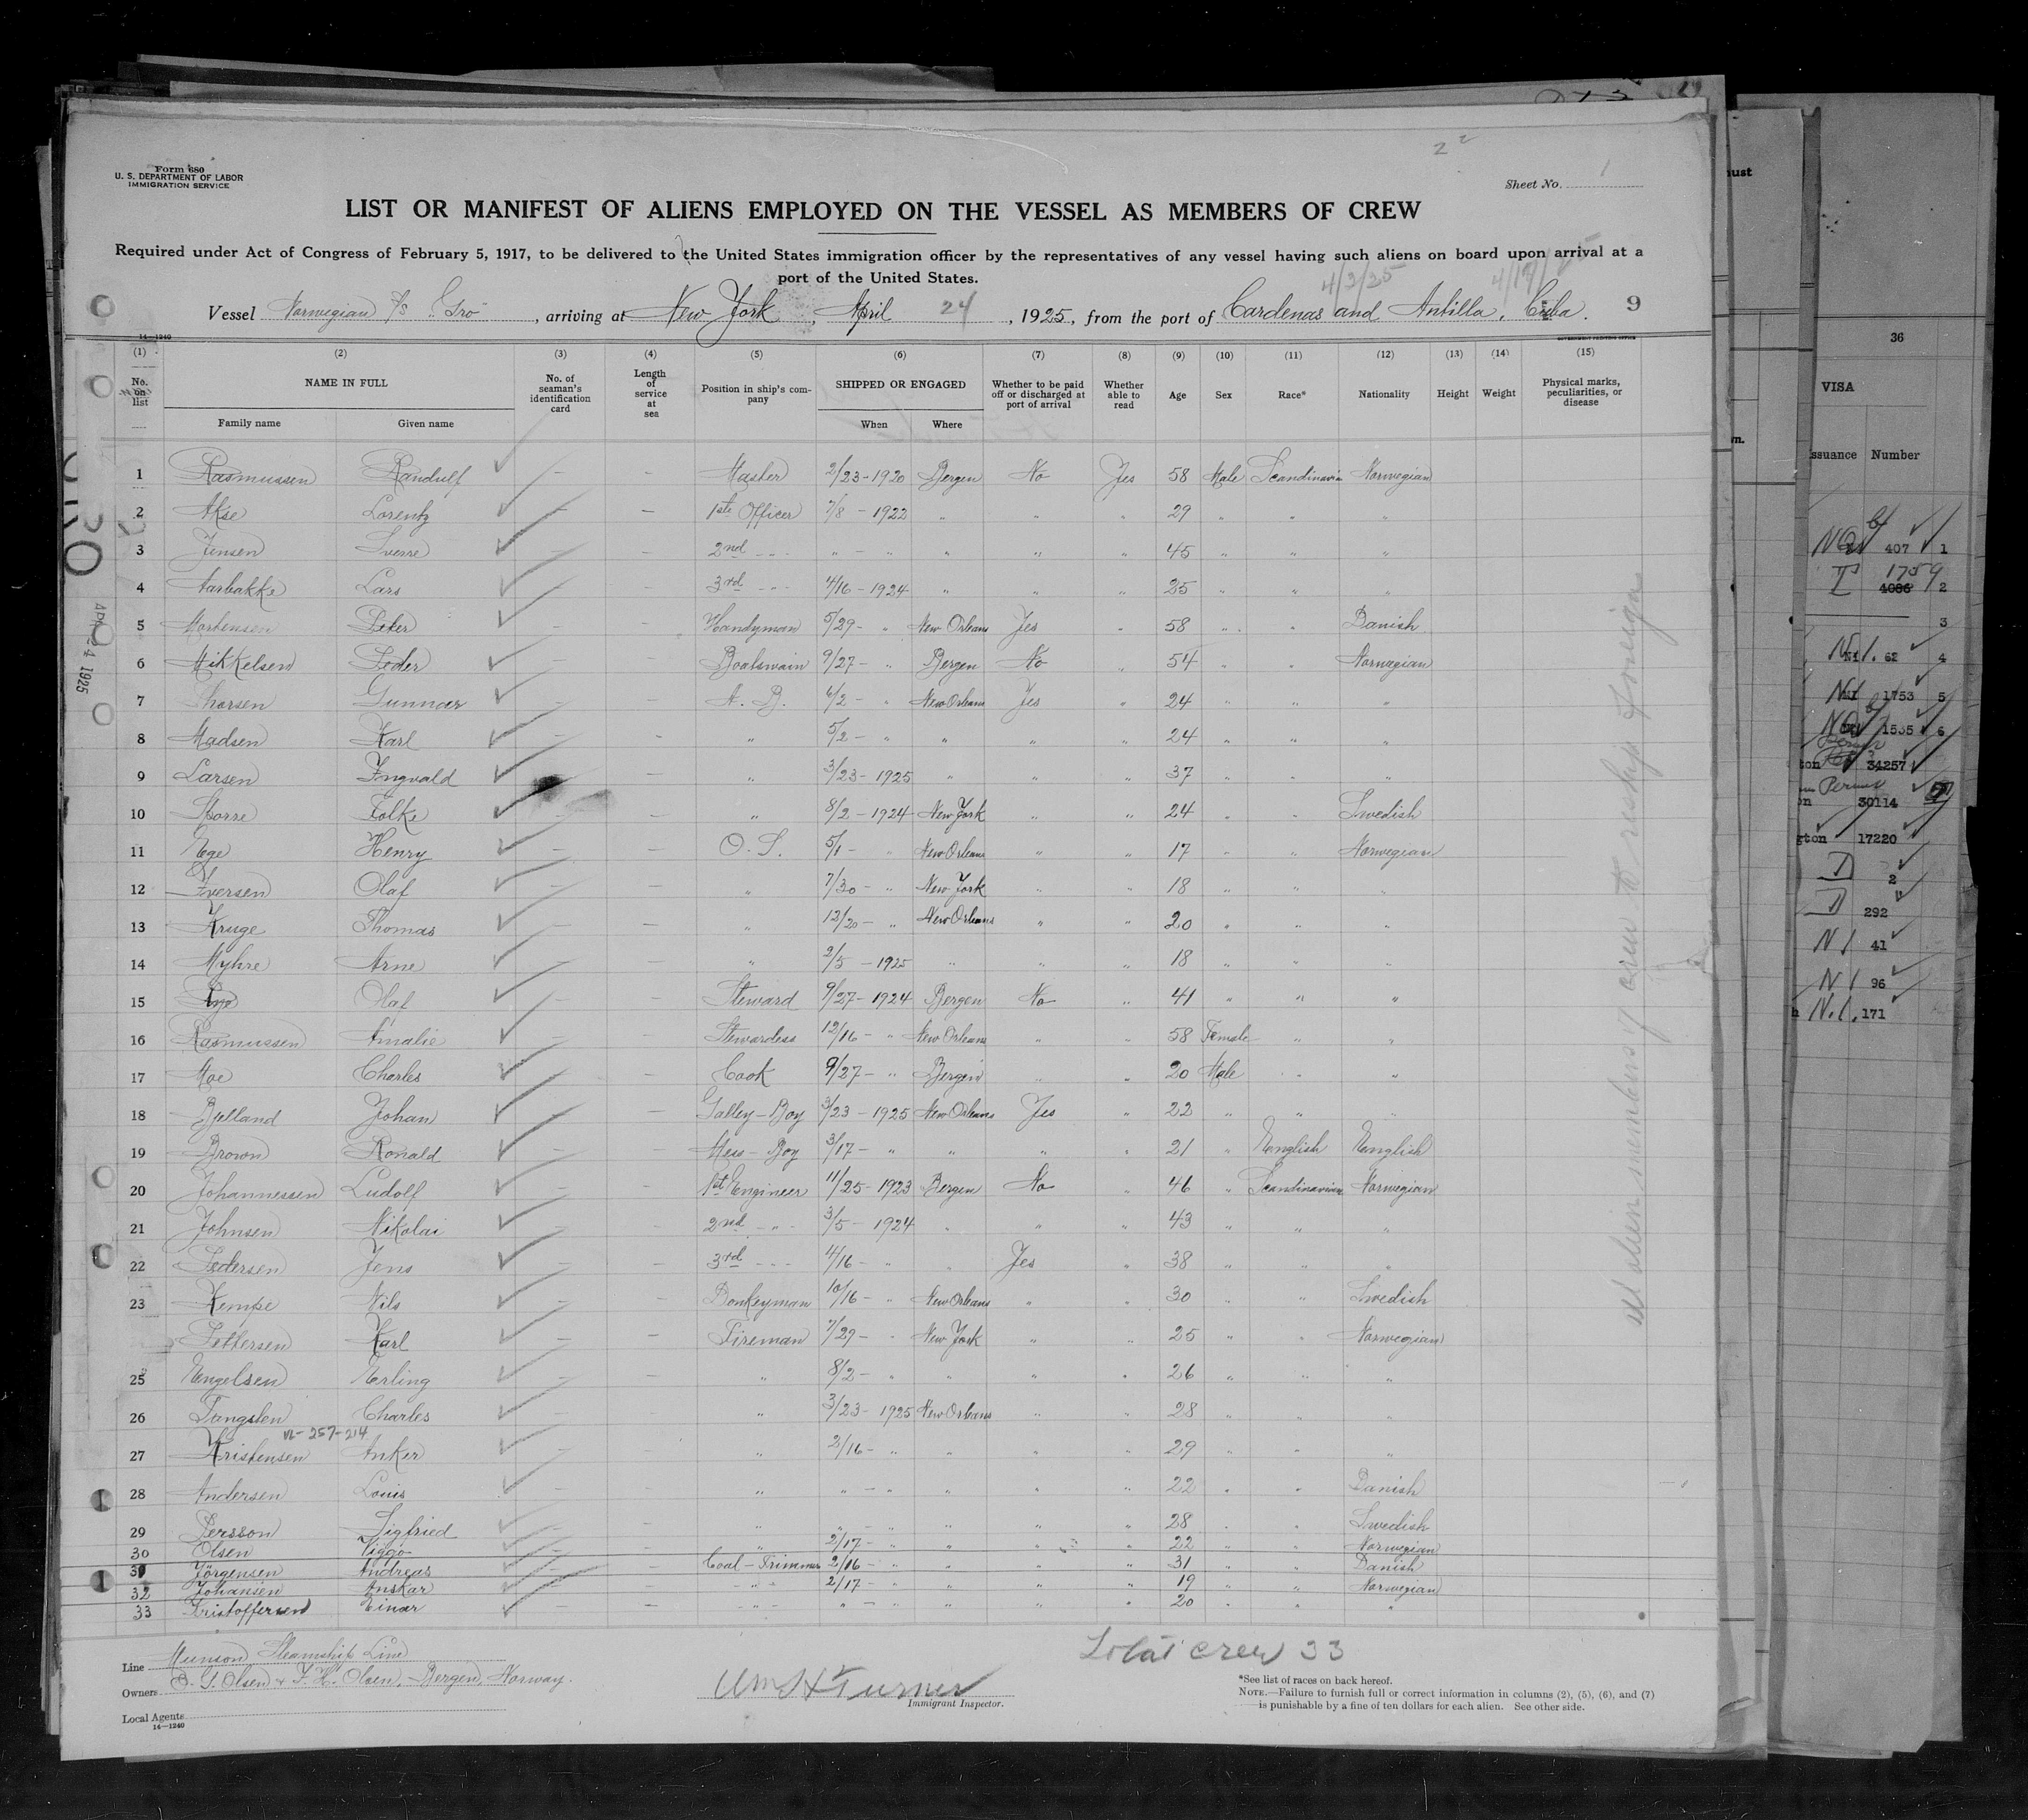 Form 680
U. S. DEPARTMENT OF LABOR
IMMIGRATION SERVICE
Sheet No. 1
LIST OR MANIFEST OF ALIENS EMPLOYED ON THE VESSEL AS MEMBERS OF CREW
Required under Act of Congress of February 5, 1917, to be delivered to the United States immigration officer by the representatives of any vessel having such aliens on board upon arrival at a
port of the United States.
4/3/25 4/19/25
Vessel Norwegian S/S "Gro", arriving at New York, April 24, 1925, from the port of Cardenas and Antilla, Cuba. 9
14—1240
(1) (2) (3) (4) (5) (6) (7) (8) (9) (10) (11) (12) (13) (14) (15)
No. on list NAME IN FULL No. of seaman's identification card Length of service at sea Position in ship's company SHIPPED OR ENGAGED Whether to be paid off or discharged at port of arrival Whether able to read Age Sex Race* Nationality Height Weight Physical marks, peculiarities, or disease
Family name Given name When Where
1 Rasmussen Randulf — — Master 2/23-1920 Bergen No Yes 58 Male Scandinavian Norwegian
2 Akse Lorentz — — 1ste Officer 7/8 - 1922 " " " 29 " " "
3 Jensen Sverre — — 2nd -"- " - " " " " 45 " " "
4 Aarbakke Lars — — 3rd -"- 4/16-1924 " " " 25 " " "
5 Mortensen Peter — — Handyman 5/29- " New Orleans Yes " 58 " " Danish
6 Mikkelsen Peder — — Boatswain 9/27- " Bergen No " 54 " " Norwegian
7 Thorsen Gunnar — — A. B. 6/2- " New Orleans Yes " 24 " " "
8 Madsen Karl — " 5/2- " " " " 24 " " "
9 Larsen Ingvald — " 3/23-1925 " " " 37 " " "
10 Storre Folke — " 8/2-1924 New York " " 24 " " Swedish
11 Ege Henry — — O. S. 5/1- " New Orleans " " 17 " " Norwegian
12 Iversen Olaf — — " 7/30- " New York " " 18 " " "
13 Kruge Thomas — — " 12/20- " New Orleans " " 20 " " "
14 Myhre Arne — — " 2/5-1925 " " " 18 " " "
15 Olaf — — Steward 9/27-1924 Bergen No " 41 " " "
16 Rasmussen Amalie — — Stewardess 12/16- " New Orleans " " 58 Female " "
17 Moe Charles — — Cook 9/27- " Bergen " " 20 Male " "
18 Bjelland Johan — — Galley-Boy 3/23-1925 New Orleans Yes " 22 " " "
19 Brown Ronald — — Mess-Boy 3/17- " " " " 21 " English English
20 Johannessen Ludolf — — 1st Engineer 11/25-1923 Bergen No " 46 " Scandinavian Norwegian
21 Johnsen Nikolai — — 2nd -"- 3/5-1924 " " " 43 " " "
22 Pedersen Jens — — 3rd -"- 4/16- " " Yes " 38 " " "
23 Kempe Nils — — Donkeyman 10/16- " New Orleans " " 30 " " Swedish
Pettersen Karl — — Fireman 7/29- " New York " " 25 " " Norwegian
25 Engelsen Erling — — " 8/2- " " " " 26 " " "
26 Tangsten Charles — — " 3/23-1925 New Orleans " " 28 " " "
VL-257-214
27 Kristensen Anker — — " 2/16- " " " " 29 " " "
28 Andersen Louis — — " " - " " " " 22 " " Danish
29 Persson Sigfried — — " " - " " " " 28 " " Swedish
30 Olsen Viggo — — " 2/17- " " " " 22 " " Norwegian
31 Jörgensen Andreas — — Coal-Trimmer 2/16- " " " " 31 " " Danish
32 Johansen Anskar — — -"- 2/17- " " " " 19 " " Norwegian
33 Kristoffersen Einar — — -"- " - " " " " 20 " " "
All alien members of crew to reship foreign
GRO
APR 24 1925
Total crew 33
Line Munson Steamship Line
Owners O. S. Olsen & F. H. Olsen, Bergen, Norway.
Local Agents
14—1240
Wm H Turner
Immigrant Inspector.
*See list of races on back hereof.
NOTE.—Failure to furnish full or correct information in columns (2), (5), (6), and (7)
is punishable by a fine of ten dollars for each alien. See other side.
36
VISA
ssuance Number
407 1
1759
4086 2
3
N1. 62 4
1753 5
1535 6
34257
30114
gton 17220
2
292
N1 41
N1 96
N.1. 171